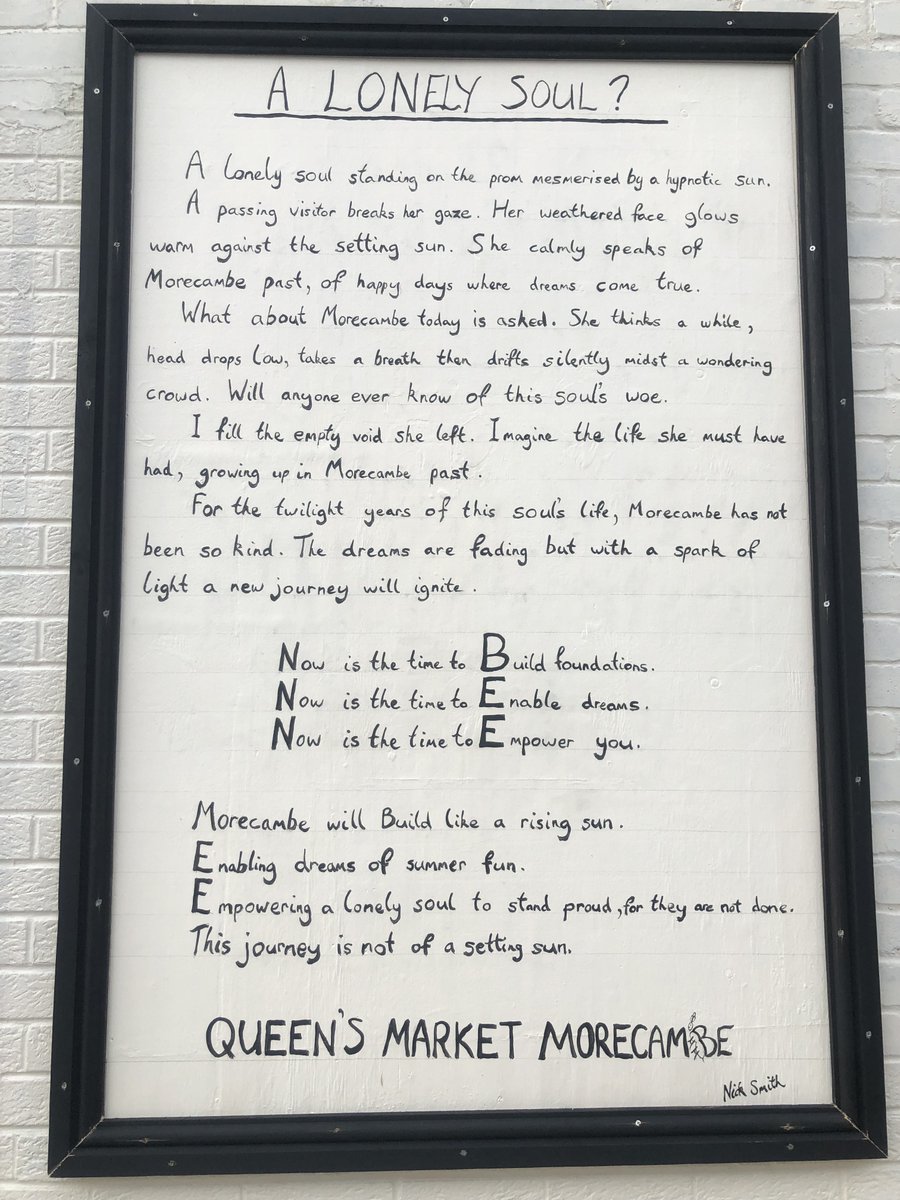 A LONELY SOUL?
A lonely soul standing on the prom mesmerised by a hypnotic sun.
A passing visitor breaks her gaze. Her weathered face glows
warm against the setting sun. She calmly speaks of
Morecambe past, of happy days where dreams come true.
What about Morecambe today is asked. She thinks a while,
head drops low, takes a breath then drifts silently midst a wondering
crowd. Will anyone ever know of this soul's woe.
I fill the empty void she left. Imagine the life she must have
had, growing up in Morecambe past.
For the twilight years of this soul's life, Morecambe has not
been so kind. The dreams are fading but with a spark of
light a new journey will ignite.
Now is the time to Build foundations.
Now is the time to Enable dreams.
Now is the time to Empower you.
Morecambe will Build like a rising sun.
Enabling dreams of summer fun.
Empowering a lonely soul to stand proud, for they are not done.
This journey is not of a setting sun.
QUEEN'S MARKET MORECAMBE
Nick Smith